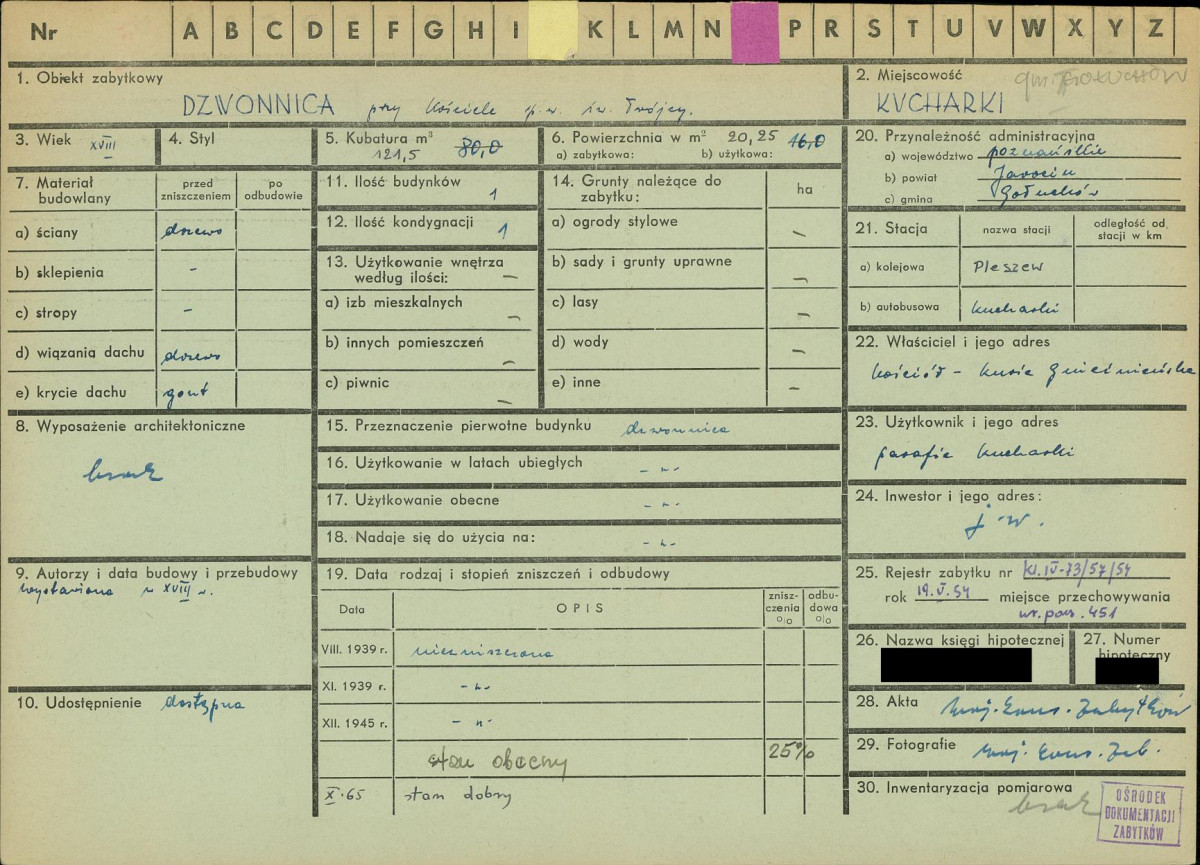 Nr A B C D E F G H I K L M N P R S T U V W X Y Z
1. Obiekt zabytkowy
DZWONNICA przy kościele p.w. św. Trójcy.
2. Miejscowość gm. GOŁUCHÓW
KUCHARKI
3. Wiek XVIII
4. Styl
5. Kubatura m³ 80,0
121,5
6. Powierzchnia w m² 20,25 16,0
a) zabytkowa: b) użytkowa:
7. Materiał budowlany
przed zniszczeniem
po odbudowie
a) ściany drzewo
b) sklepienia -
c) stropy -
d) wiązania dachu drzewo
e) krycie dachu gont
8. Wyposażenie architektoniczne
brak
9. Autorzy i data budowy i przebudowy
wystawiona w XVIII w.
10. Udostępnienie dostępna
11. Ilość budynków 1
12. Ilość kondygnacji 1
13. Użytkowanie wnętrza
według ilości: —
a) izb mieszkalnych —
b) innych pomieszczeń —
c) piwnic —
14. Grunty należące do
zabytku:
ha
a) ogrody stylowe —
b) sady i grunty uprawne —
c) lasy —
d) wody —
e) inne —
15. Przeznaczenie pierwotne budynku dzwonnica
16. Użytkowanie w latach ubiegłych - „ -
17. Użytkowanie obecne - „ -
18. Nadaje się do użycia na: - „ -
19. Data rodzaj i stopień zniszczeń i odbudowy
Data
OPIS
znisz-
czenia
%
odbu-
dowa
%
VIII. 1939 r. niezniszczona
XI. 1939 r. - „ -
XII. 1945 r. - „ -
stan obecny 25%
X.65 stan dobry
20. Przynależność administracyjna
a) województwo poznańskie
b) powiat Jarocin
c) gmina Gołuchów
21. Stacja
nazwa stacji
odległość od
stacji w km
a) kolejowa Pleszew
b) autobusowa Kucharki
22. Właściciel i jego adres
kościół - kuria Gnieźnieńska
23. Użytkownik i jego adres
parafia Kucharki
24. Inwestor i jego adres:
j.w.
25. Rejestr zabytku nr Kl.IV-73/57/54
rok 19.V.54 miejsce przechowywania
nr. poz. 451
26. Nazwa księgi hipotecznej
27. Numer
hipoteczny
28. Akta Woj. Kons. Zabytków
29. Fotografie Woj. Kons. Zab.
30. Inwentaryzacja pomiarowa
brak
OŚRODEK
DOKUMENTACJI
ZABYTKÓW